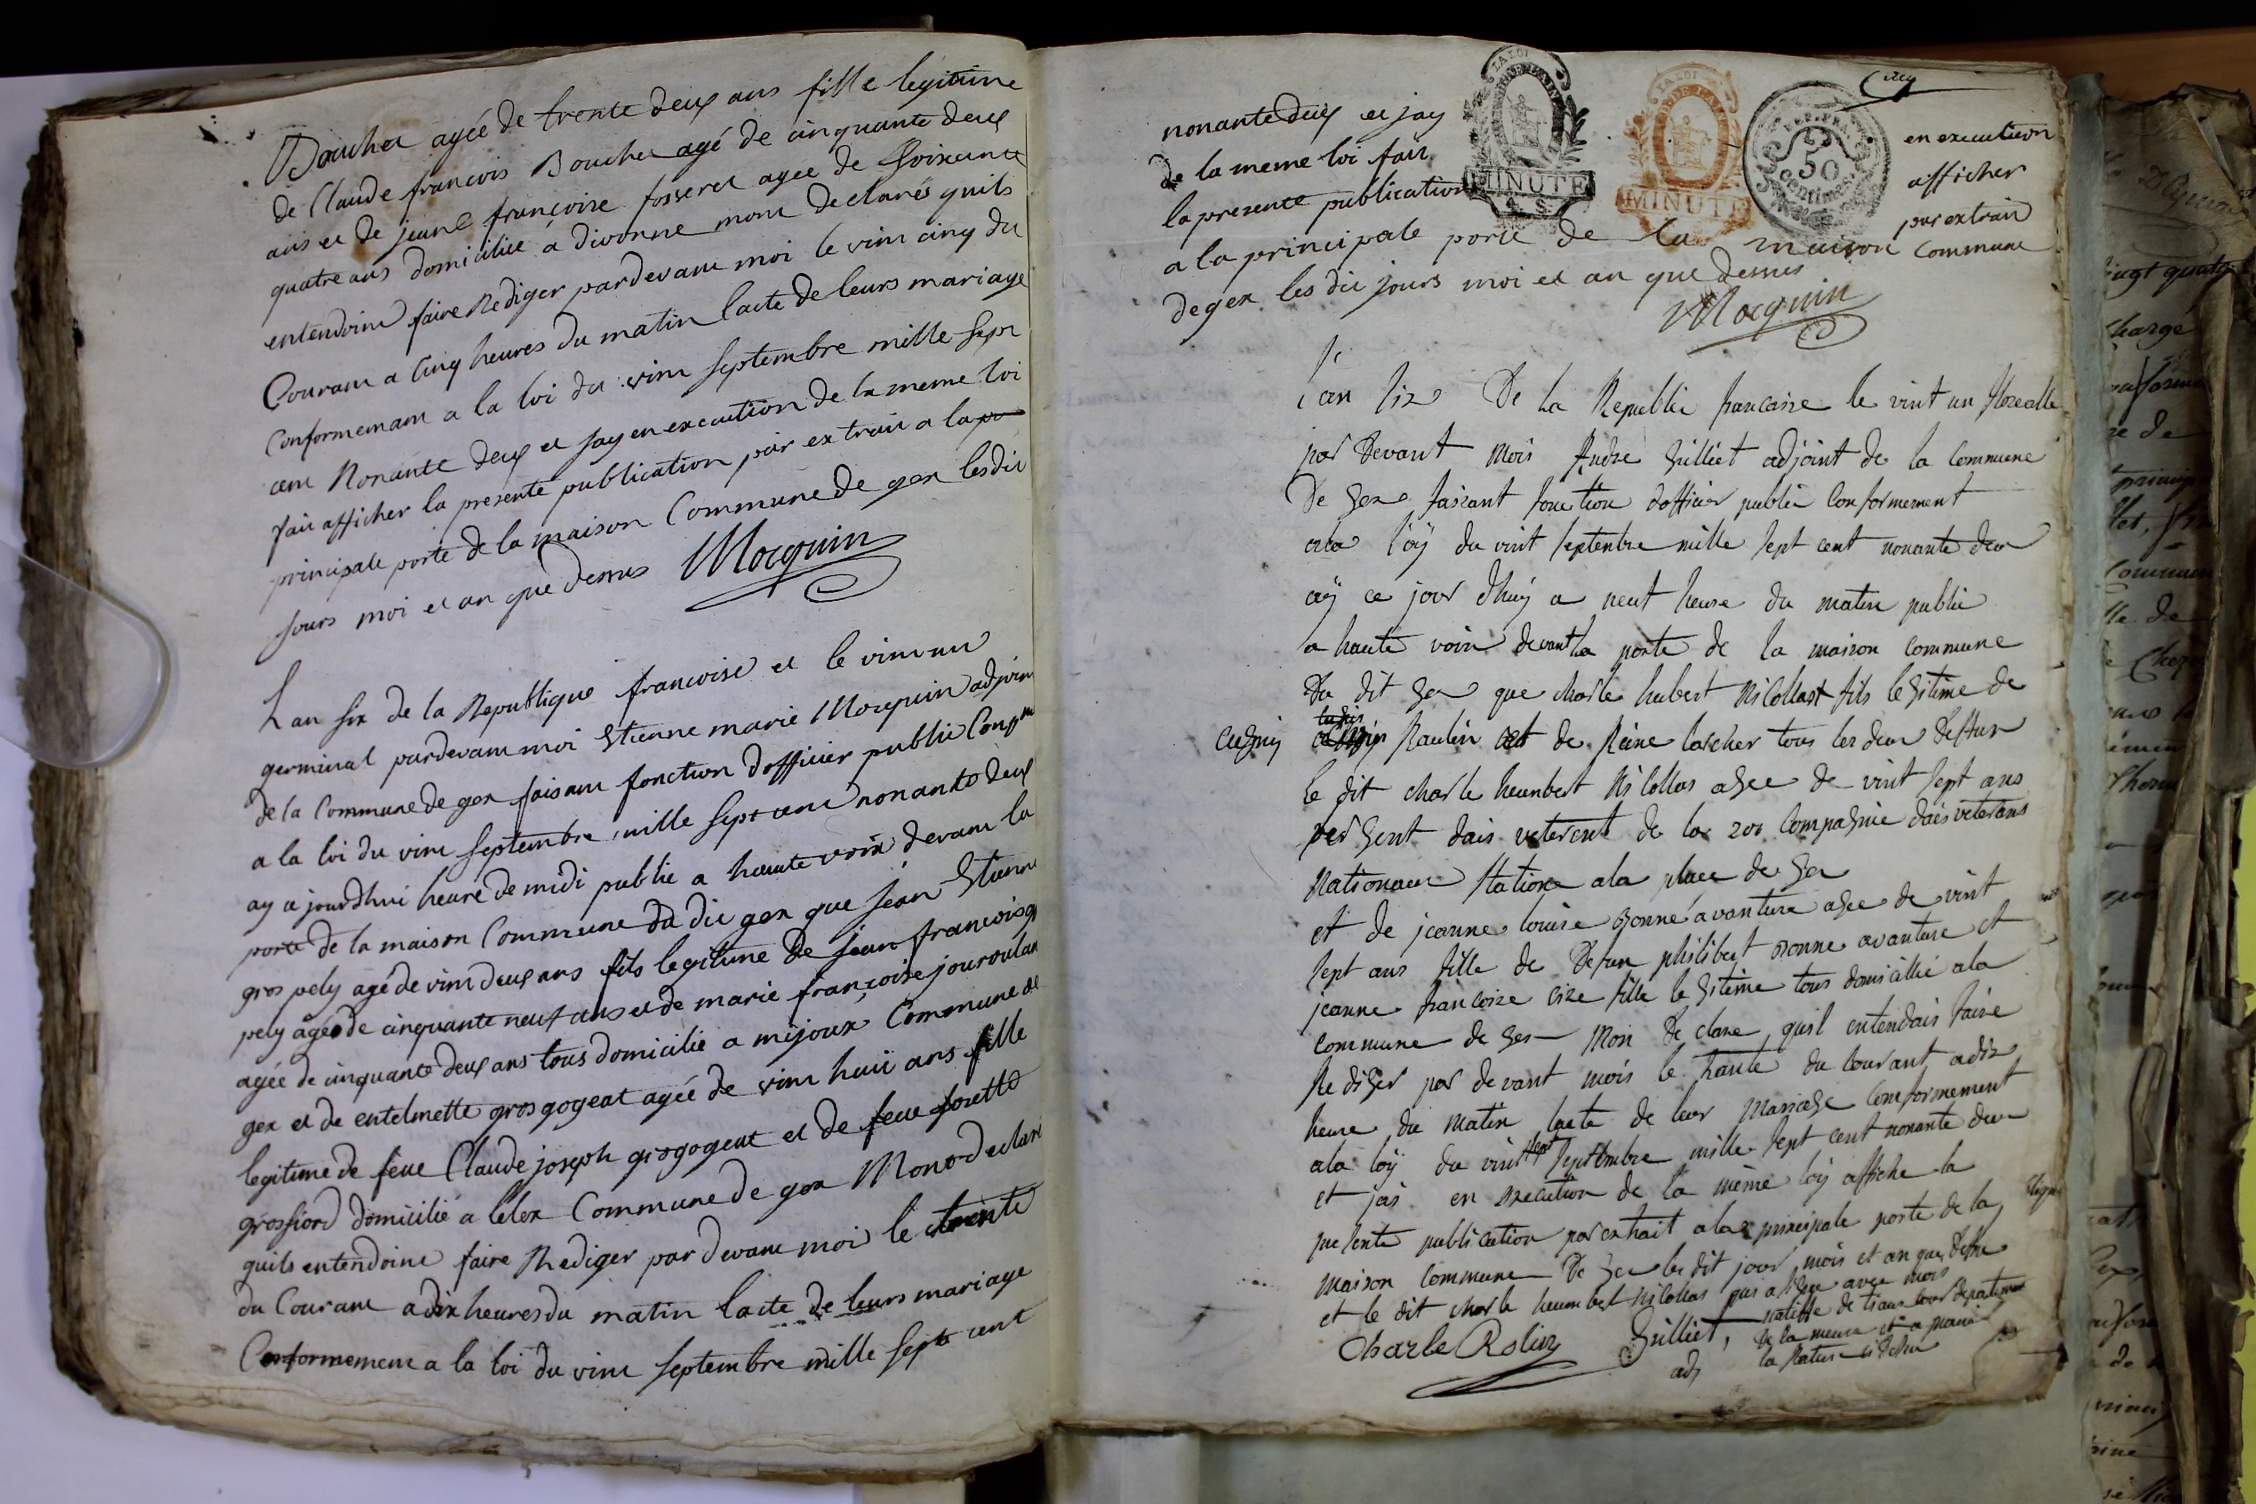 Bouchet agée de trente deux ans fille legitime
de Claude francois Bouchet agé de cinquante deux
ans et de jeane françoise fosseret agee de Soixante
quatre ans domicilié a divonne mont declarés quils
entendoint faire Rediger pardevant moi le vint cinq du
Courant a Cinq heures du matin lacte de leurs mariage
Conformement a la loi du vint septembre mille sept
cent Nonante deux et jay en execution de la meme loi
fait afficher la presente publication par extrait a la po
principale porte de la maison Commune de gex lesdit
jours moi et an que dessus Mocquin
Lan six de la Republique francoise et le vint un
germinal pardevant moi Etienne marie Mocquin adjoint
de la Commune de gex faisant fonction dofficier public Confmt
a la loi du vint septembre mille sept cent nonante deux
ay ce jourdhui heure de midi publié a haute voix devant la
porte de la maison Commune du dit gex que jean Etienne
gros pely agé de vint deux ans fils legitime de jean francois g
pely agé de cinquante neuf ans et de marie françoise jouroulan
agée de cinquante deux ans tous domicilié a mijoux Commune de
gex et de entelmette grosgogeat agée de vint huit ans fille
legitime de feue Claude joseph grosgogeat et de feue josette
grosfiord domicilié a lelex Commune de gex Mont declaré
quils entendoint faire Rediger par devant moi le trente
du Courant a dix heures du matin lacte de leurs mariage
Conformement a la loi du vint septembre mille sept cent
nonante deux et jay
en execution
de la meme loi fait
afficher
la presente publication
par extrait
LA LOI
MINUTE
A. S.
LA LOI
MINUTE
REP. FRA.
50
Centimes
a la principale porte de la maison Commune
de gex les dit jours moi et an que dessus
Mocquin
lan six De la Republic francaise le vint un floréalle
par Devant Mois Andre Gilliet adjoint de la Commune
De Gex faisant fonction dofficier public Conformement
ala loÿ du vint septembre mille sept cent nonante deu
aÿ ce jour dhuÿ a neuf heure du matin public
a haute voix devant la porte de la maison commune
Du dit Gex que charle hubert Nicollas fils legitime de
Cugnin Raulin et de Reine larcher tous les deux deffun
le dit charle heumbert Nicollas agee de vint sept ans
sergent dais veterent de la 201 Compagnie dais veterans
Nationaux station ala place de Gex
et de jeanne louise Bonne avanture agee de vint
sept ans fille de Defun philibert Bonne avanture et
jeanne francoise cize fille legitime tous domicillié ala
commune de Gex Mon De clare quil entendais faire
Rediger par devant mois le trante du courant a dix
heure du matin lacte de leur Mariage Conformement
ala loÿ du vint sept septembre mille sept cent nonante deu
et jai en execution de la même loÿ affiche la
presente publication par extrait ala principale porte de la
maison Commune De Gex les dit jour mois et an que dessu
et le dit charle heumbert Nicollas qui a signe avec mois
Charle Rolin Gilliet, natiffe de departement
adj de la meuse et a